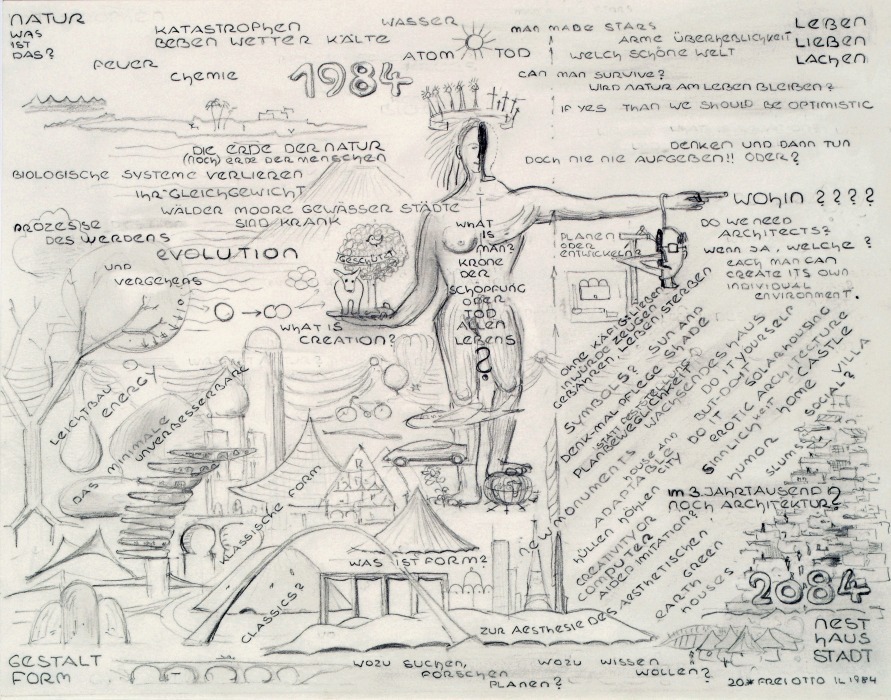 NATUR
WAS
IST
DAS?
KATASTROPHEN
BEBEN WETTER KÄLTE
WASSER
FEUER
CHEMIE
1984
ATOM TOD
MAN MADE STARS
ARME ÜBERHEBLICHKEIT
WELCH SCHÖNE WELT
LEBEN
LIEBEN
LACHEN
CAN MAN SURVIVE?
WIRD NATUR AM LEBEN BLEIBEN?
IF YES THAN WE SHOULD BE OPTIMISTIC
DENKEN UND DANN TUN
DOCH NIE NIE AUFGEBEN!! ODER?
DIE ERDE DER NATUR
(NOCH) ERDE DER MENSCHEN
BIOLOGISCHE SYSTEME VERLIEREN
IHR GLEICHGEWICHT
WÄLDER MOORE GEWÄSSER STÄDTE
SIND KRANK
PROZESSE
DES WERDENS
EVOLUTION
UND
VERGEHENS
GESCHÜTZT
WHAT IS
CREATION?
WHAT
IS
MAN?
KRONE
DER
SCHÖPFUNG
ODER
TOD
ALLEN
LEBENS
?
WOHIN ????
PLANEN
ODER
ENTWICKELN
DO WE NEED
ARCHITECTS?
WENN JA, WELCHE?
EACH MAN CAN
CREATE ITS OWN
INDIVIDUAL
ENVIRONMENT.
LEICHTBAU
ENERGY
DAS MINIMALE
UNVERBESSERBARE
KLASSISCHE FORM
CLASSICS?
WAS IST FORM?
OHNE KÄFIG LIEBEN
IN WÜRDE ZEUGEN
GEBÄHREN, LEBEN, STERBEN
SYMBOLS? SUN AND SHADE
DENK-MAL PFLEGE
STATT
PLANBEWEGLICHKEIT
WACHSENDES HAUS
DO IT YOURSELF
BUT DONT
DO IT
SOLARHOUSING
EROTIC ARCHITECTURE
SINNLICHKEIT
CASTLE
HOME
VILLA
HUMOR
SLUM
SOCIAL?
NEW MONUMENTS
HOUSE AND
CITY
ADAPTABLE
HÜLLEN HÖHLEN
CREATIVITY OR
COMPUTER
AFFEN IMITATION?
IM 3. JAHRTAUSEND
NOCH ARCHITEKTUR?
ZUR AESTHESIE DES AESTHETISCHEN
EARTH GREEN
HOUSES
2084
NEST
HAUS
STADT
GESTALT
FORM
WOZU SUCHEN,
FORSCHEN
PLANEN?
WOZU WISSEN
WOLLEN?
FREI OTTO IL 1984